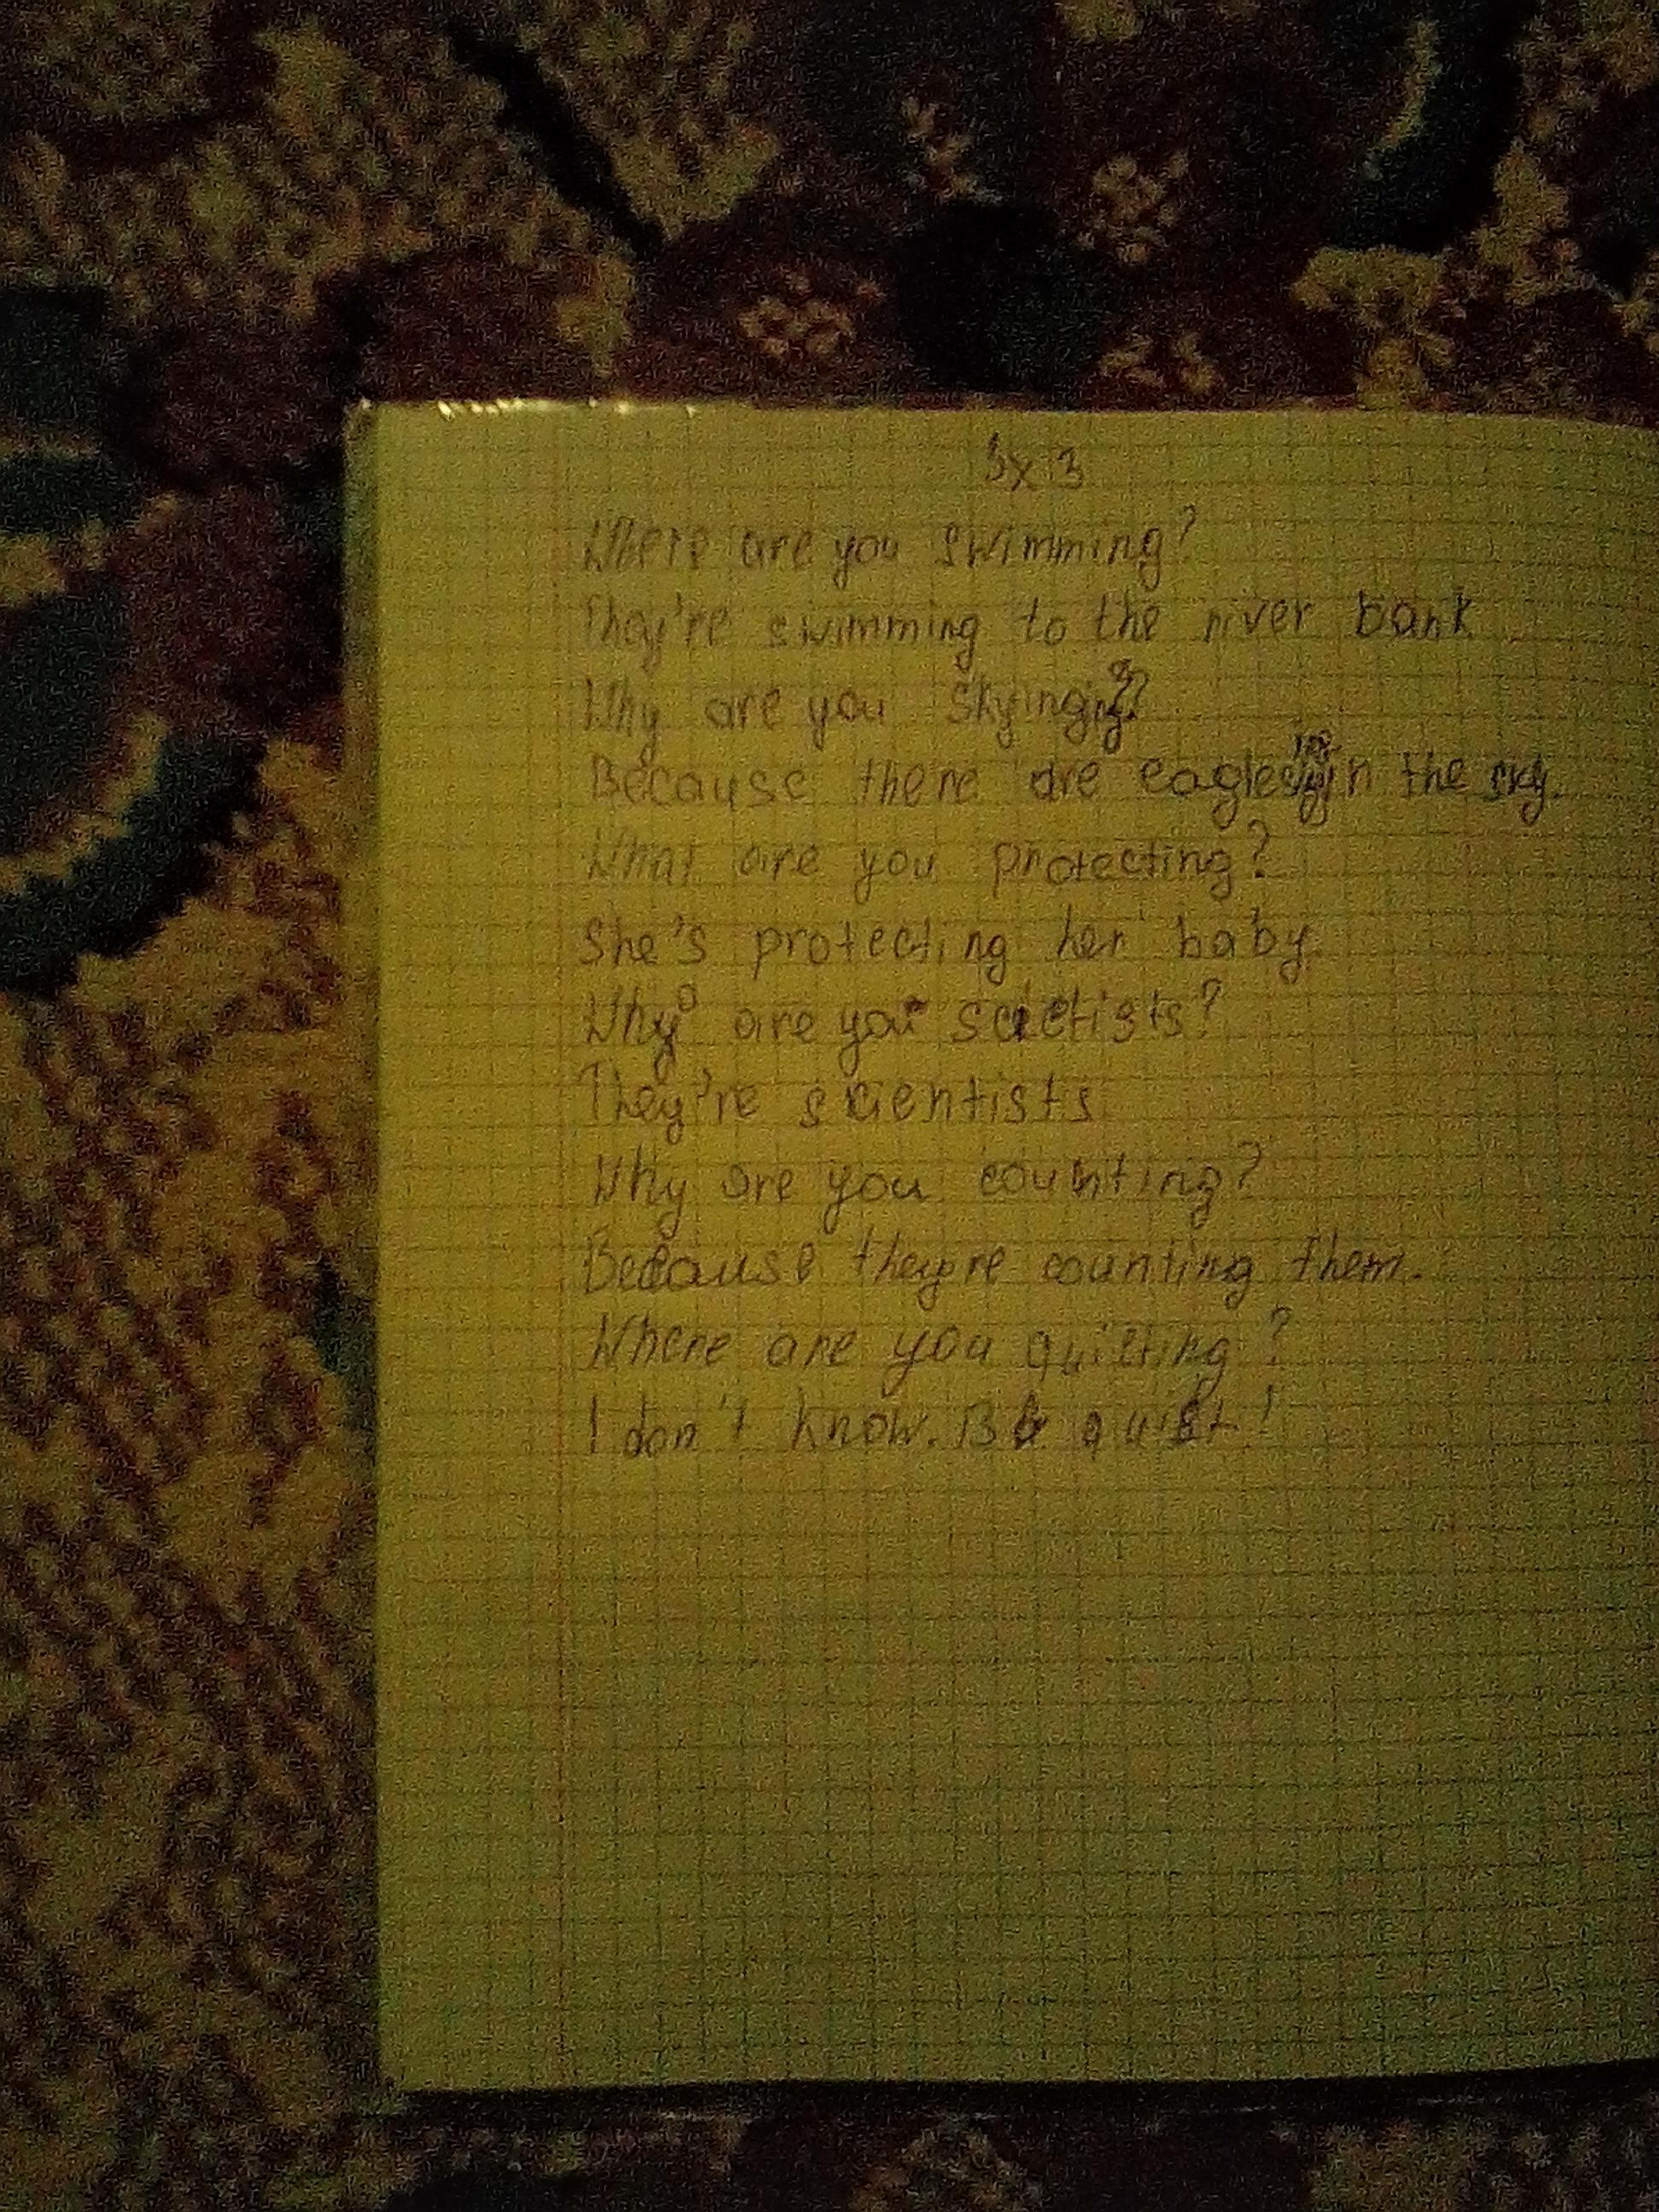 Ex 3
Where are you swimming?
They're swimming to the river bank
Why are you skying?
Because there are eagles in the sky.
What are you protecting?
She's protecting her baby.
Why are you scietists?
They're scientists
Why are you counting?
Because they're counting them.
Where are you quiting?
I don't know. Be quiet!